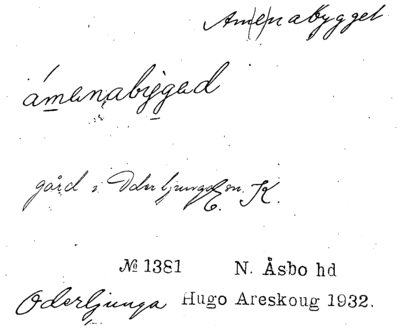 Am(e)nabygget
ámenabýgəd
gård i Oderljunga sn. K.
E.
№ 1381 N. Åsbo hd
Oderljunga Hugo Areskoug 1932.